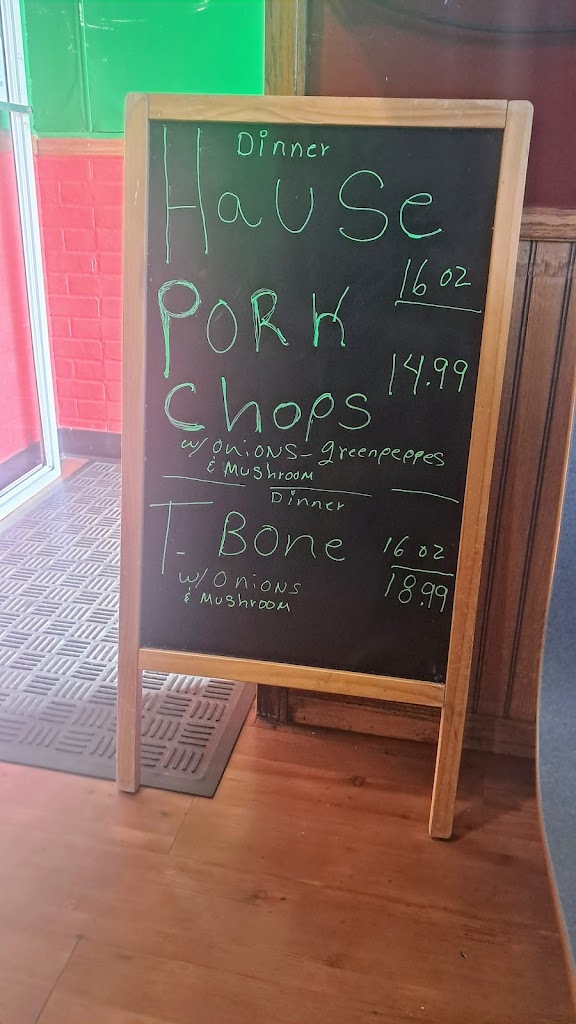 Dinner
HauSe
16 oz
PORK
14.99
Chops
w/ Onions - greenpeppes
& Mushroom
Dinner
T-Bone
16 oz
18.99
w/ Onions
& Mushroom